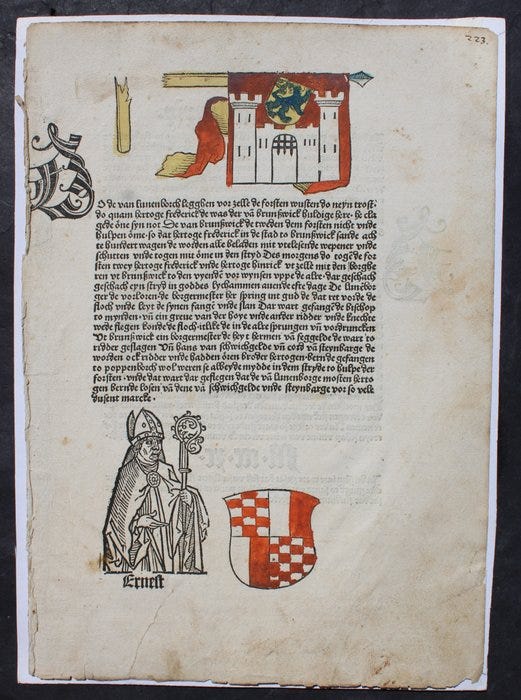 223.
DO de van lunenborch legghen vor zelle de forsten wusten do neyn trost·
do quam hertoge frederick de was der vā brunswick huldige here· he cla
gede ōne syn not De van brunswick de tweden dem forsten nicht vnde
hulpen ōme· so dat hertoge frederick in de stad to brunswick sande ach
te hundert wagen de worden alle beladen mit vtelesende wepener vnde
schutten vnde togen mit ōne in den stryd Des morgens do togē de for
sten twey hertoge frederick vnde hertoge hinrick vt zelle mit den borghe
ren vt brunswick to den vyendē vor wynsen vppe de aller· dar geschach
geschach eyn stryd in goddes lychammen auende efte dage De lunebor
ger de vorloren· de borgermester her spring int gud de dat ret vor de
floch vnde leyt de synen fangē vnde slan Dar wart gefangē de bischop
to mynden· vn̄ ein greue van der hoye vnde ander ridder vnde knechte
wede flegen konde de floch· itlike de in de alre sprungen vn̄ vordruncken
Vt brunswick ein borgermester de heyt hermen vā feggelde de wart to
ridder geslagen Vn̄ hans van schwichgelde vn̄ cord vā steynbarge de
worden ock ridder vnde hadden ōren broder hertogen· bernde gefangen
to poppenborch wol weren se albeyde mydde in dem stryde to hulpe der
forsten· vnde dar wart dar geslegen dat de vā lunenborge mosten herto
gen bernde losen vā dene vā schwichgelde vnde steynbarge vor so velt
dusent marcke·
Ernest